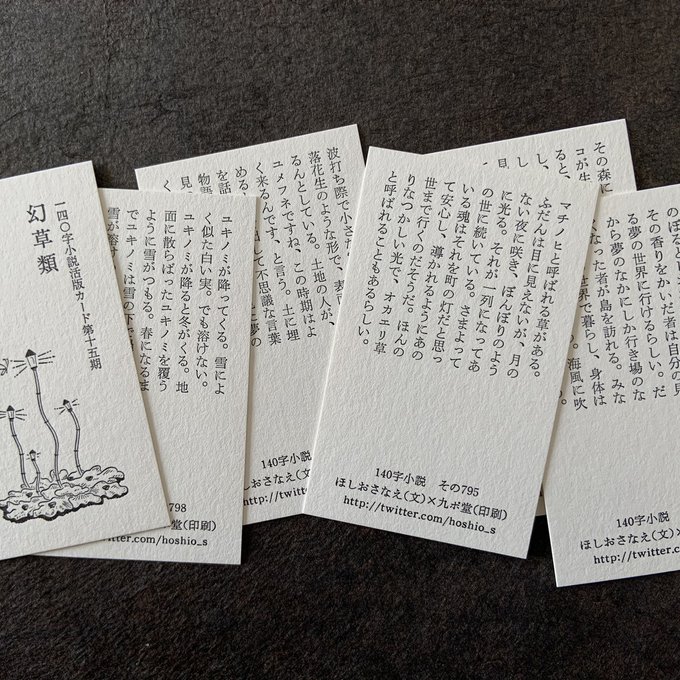 一四〇字小説活版カード第十五期
幻草類
ユキノミが降ってくる。雪によ
く似た白い実。でも溶けない。
ユキノミが降ると冬がくる。地
面に散らばったユキノミを覆う
ように雪がつもる。春になるま
でユキノミは雪の下で
雪が溶け
798
堂(印刷)
twitter.com/hoshio_s
波打ち際で小さ
落花生のような形で、表
るんとしている。土地の人が、
ユメフネですね、この時期はよ
く来るんです、と言う。土に埋
める て不思議な言葉
を話 夢の
物語
見
マチノヒと呼ばれる草がある。
ふだんは目に見えないが、月の
ない夜に咲き、ぼんぼりのよう
に光る。それが一列になってあ
の世に続いている。さまよって
いる魂はそれを町の灯だと思っ
て安心し、導かれるようにあの
世まで行くのだそうだ。ほんの
りなつかしい光で、オカエリ草
と呼ばれることもあるらしい。
140字小説 その795
ほしおさなえ(文)×九ポ堂(印刷)
http://twitter.com/hoshio_s
その森に
コが生
し、
ると、
その香りをかいだ者は自分の見
る夢の世界に行けるらしい。だ
から夢のなかにしか行き場のな
なった者が島を訪れる。みな
世界で暮らし、身体は
海風に吹
140字小説
ほしおさなえ(文)×
http://twitter.c